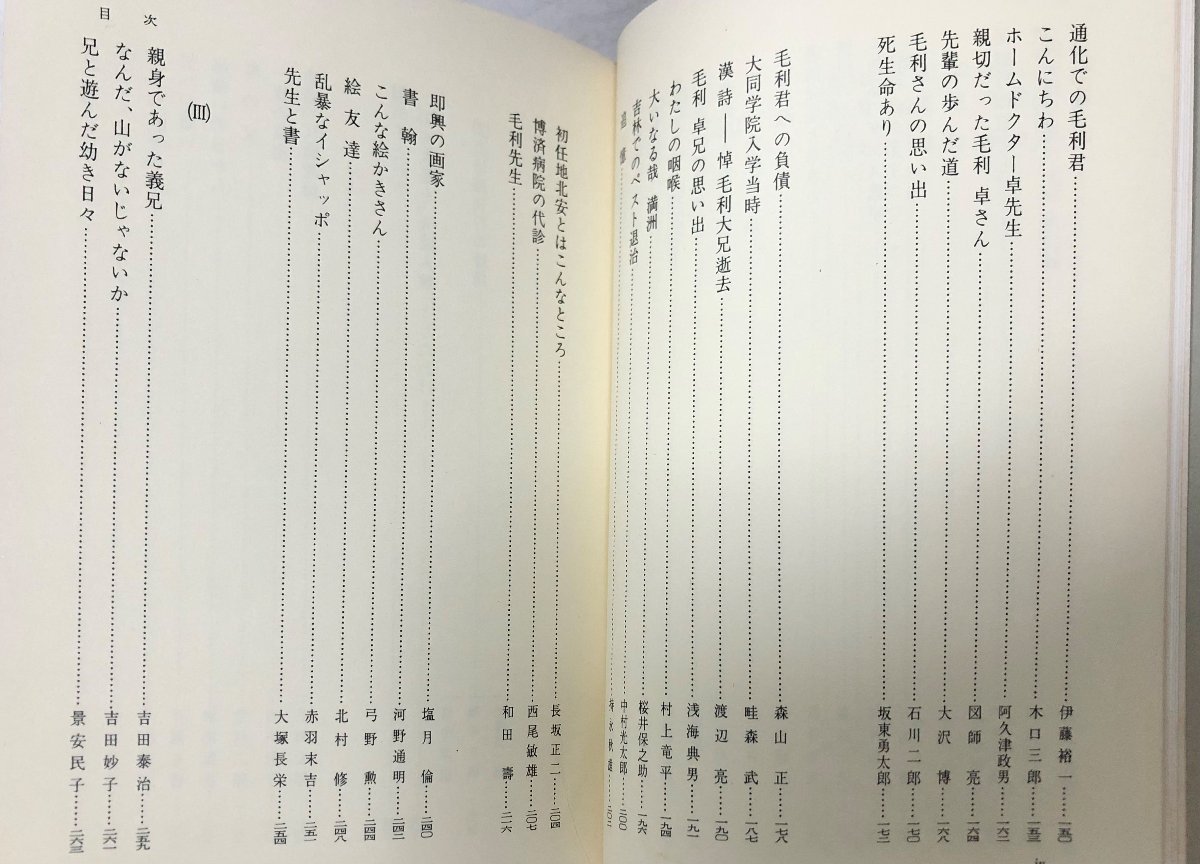 通化での毛利君…………伊藤裕一……一五〇
こんにちわ…………木口三郎……一五三
ホームドクター卓先生…………阿久津政男……一六二
親切だった毛利 卓さん…………図師 亮……一六四
先輩の歩んだ道…………大沢 博……一六八
毛利さんの思い出…………石川二郎……一七〇
死生命あり…………坂東勇太郎……一七三
毛利君への負債…………森山 正……一七八
大同学院入学当時…………畦森 武……一八七
漢詩――悼毛利大兄逝去…………渡辺 亮……一九〇
毛利 卓兄の思い出…………浅海典男……一九一
わたしの咽喉…………村上竜平……一九四
大いなる哉 満洲…………桜井保之助……一九六
吉林でのペスト退治…………中村光太郎……二〇〇
追 憶…………
初任地北安とはこんなところ…………長坂正二……二〇四
博済病院の代診…………西尾敏雄……二〇七
毛利先生…………和田 壽……二一六
即興の画家…………塩月 倫……二四〇
書 翰…………河野通明……二四二
こんな絵かきさん…………弓野 勲……二四四
絵 友 達…………北村 修……二四八
乱暴なイシャッポ…………赤羽末吉……二五一
先生と書…………大塚長栄……二五四
(Ⅲ)
親身であった義兄…………吉田泰治……二五九
なんだ、山がないじゃないか…………吉田妙子……二六一
兄と遊んだ幼き日々…………景安民子……二六三
目 次